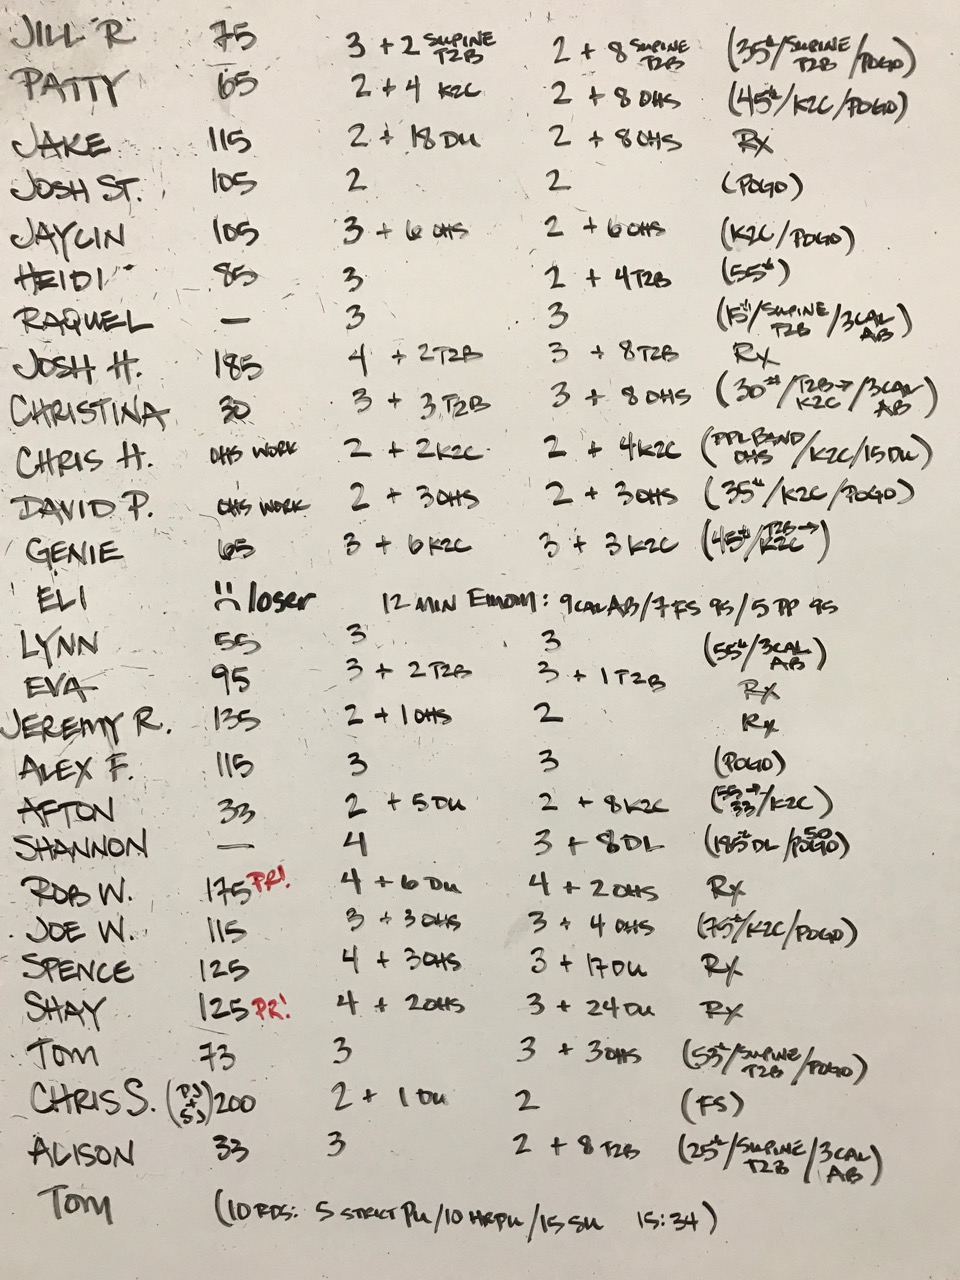 JILL R 75 3 + 2 SUPINE T2B 2 + 8 SUPINE T2B (35#/SUPINE T2B/POGO)
PATTY 65 2 + 4 K2C 2 + 8 OHS (45#/K2C/POGO)
JAKE 115 2 + 18 DU 2 + 8 OHS RX
JOSH ST. 105 2 2 (POGO)
JAYCIN 105 3 + 6 OHS 2 + 6 OHS (K2C/POGO)
HEIDI 85 3 2 + 4 T2B (55#)
RAQUEL — 3 3 (15#/SUPINE T2B/3 CAL AB)
JOSH H. 185 4 + 2 T2B 3 + 8 T2B RX
CHRISTINA 30 3 + 3 T2B 3 + 8 OHS (30#/T2B→K2C/3 CAL AB)
CHRIS H. OHS WORK 2 + 2 K2C 2 + 4 K2C (PPL BAND OHS/K2C/15 DU)
DAVID P. OHS WORK 2 + 3 OHS 2 + 3 OHS (35#/K2C/POGO)
GENIE 65 3 + 6 K2C 3 + 3 K2C (45#/T2B→K2C)
ELI loser 12 MIN EMOM: 9 CAL AB/7 FS 95/5 PP 95
LYNN 55 3 3 (55#/3 CAL AB)
EVA 95 3 + 2 T2B 3 + 1 T2B RX
JEREMY R. 135 2 + 1 OHS 2 RX
ALEX F. 115 3 3 (POGO)
AFTON 33 2 + 5 DU 2 + 8 K2C (55→33/K2C)
SHANNON — 4 3 + 8 DL (185# DL/50 POGO)
ROB W. 175 PR! 4 + 6 DU 4 + 2 OHS RX
JOE W. 115 3 + 3 OHS 3 + 4 OHS (75#/K2C/POGO)
SPENCE 125 4 + 3 OHS 3 + 17 DU RX
SHAY 125 PR! 4 + 2 OHS 3 + 24 DU RX
TOM 73 3 3 + 3 OHS (53#/SUPINE T2B/POGO)
CHRIS S. (PJ + SJ) 200 2 + 1 DU 2 (FS)
ALISON 33 3 2 + 8 T2B (25#/SUPINE T2B/3 CAL AB)
TOM (10 RDS: 5 STRICT PU/10 HRPU/15 SU 15:34)